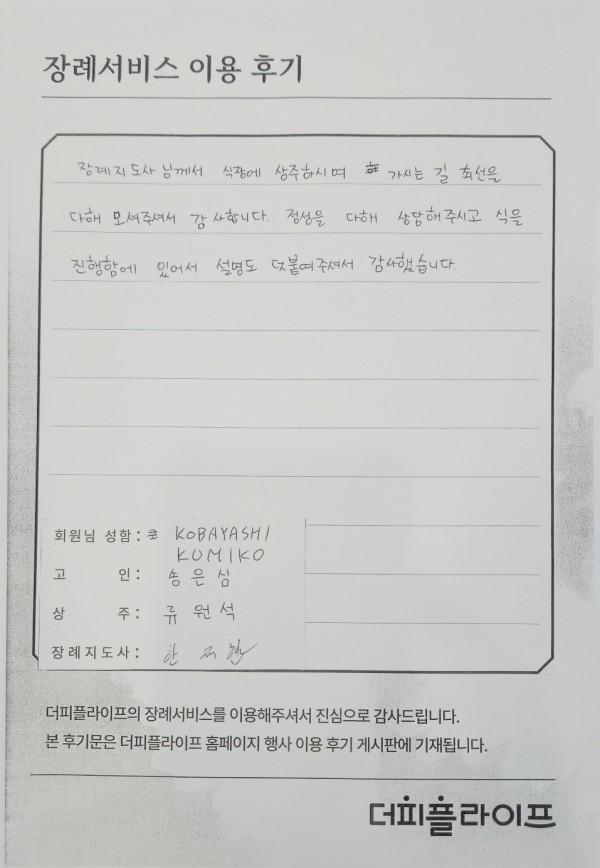 장례서비스 이용 후기
장례지도사님께서 식장에 상주하시며 가시는 길 최선을
다해 모셔주셔서 감사합니다. 정성을 다해 상담해주시고 식을
진행함에 있어서 설명도 덧붙여주셔서 감사했습니다.
회원님 성함: KOBAYASHI
KUMIKO
고 인: 송은심
상 주: 류원석
장례지도사:
더피플라이프의 장례서비스를 이용해주셔서 진심으로 감사드립니다.
본 후기문은 더피플라이프 홈페이지 행사 이용 후기 게시판에 기재됩니다.
더피플라이프